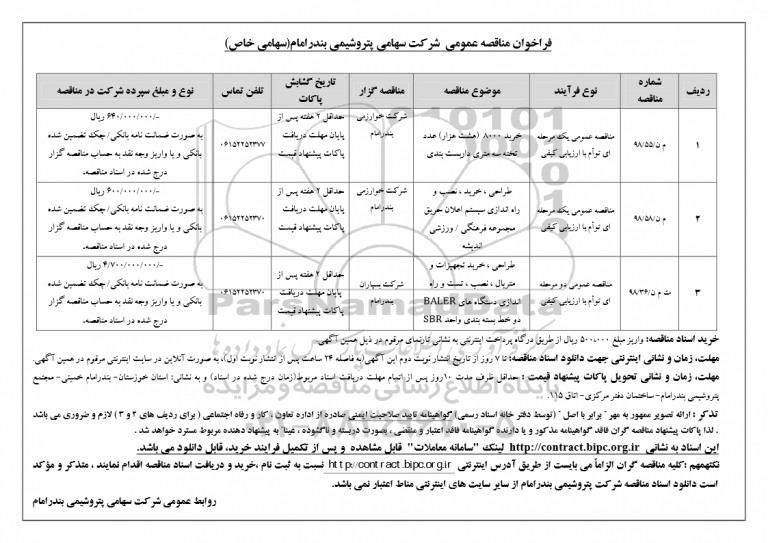 فراخوان مناقصه عمومی شرکت سهامی پتروشیمی بندرامام(سهامی خاص)
ردیف | شماره مناقصه | نوع فرآیند | موضوع مناقصه | مناقصه گزار | تاریخ گشایش پاکات | تلفن تماس | نوع و مبلغ سپرده شرکت در مناقصه
۱ | م ن/۹۸/۵۵ | مناقصه عمومی یک مرحله ای توأم با ارزیابی کیفی | خرید ۸۰۰۰ (هشت هزار) عدد تخته سه متری داربست بندی | شرکت خوارزمی بندرامام | حداقل ۲ هفته پس از پایان مهلت دریافت پاکات پیشنهاد قیمت | ۰۶۱۵۲۲۵۲۳۷۷ | ۶۴۰/۰۰۰/۰۰۰/- ریال به صورت ضمانت نامه بانکی/چک تضمین شده بانکی و یا واریز وجه نقد به حساب مناقصه گزار درج شده در اسناد مناقصه.
۲ | م ن/۹۸/۵۸ | مناقصه عمومی یک مرحله ای توأم با ارزیابی کیفی | طراحی ، خرید ، نصب و راه اندازی سیستم اعلان حریق مجموعه فرهنگی / ورزشی اندیشه | شرکت خوارزمی بندرامام | حداقل ۲ هفته پس از پایان مهلت دریافت پاکات پیشنهاد قیمت | ۰۶۱۵۲۲۵۲۳۷۰ | ۶۰۰/۰۰۰/۰۰۰/- ریال به صورت ضمانت نامه بانکی/چک تضمین شده بانکی و یا واریز وجه نقد به حساب مناقصه گزار درج شده در اسناد مناقصه.
۳ | ث م ن/۹۸/۳۶ | مناقصه عمومی دو مرحله ای توأم با ارزیابی کیفی | طراحی ، خرید تجهیزات و متریال ، نصب ، تست و راه اندازی دستگاه های BALER دو خط بسته بندی واحد SBR | شرکت بسپاران بندرامام | حداقل ۲ هفته پس از پایان مهلت دریافت پاکات پیشنهاد قیمت | ۰۶۱۵۲۲۵۲۳۷۰ | ۴/۷۰۰/۰۰۰/۰۰۰/- ریال به صورت ضمانت نامه بانکی/چک تضمین شده بانکی و یا واریز وجه نقد به حساب مناقصه گزار درج شده در اسناد مناقصه.
خرید اسناد مناقصه: واریز مبلغ ۵۰۰،۰۰۰ ریال از طریق درگاه پرداخت اینترنتی به نشانی تارنمای مرقوم در ذیل همین آگهی.
مهلت، زمان و نشانی اینترنتی جهت دانلود اسناد مناقصه: تا ۷ روز از تاریخ انتشار نوبت دوم این آگهی(به فاصله ۲۴ ساعت پس از انتشار نوبت اول)، به صورت آنلاین در سایت اینترنتی مرقوم در همین آگهی.
مهلت، زمان و نشانی تحویل پاکات پیشنهاد قیمت : حداقل ظرف مدت ۱۰روز پس از اتمام مهلت دریافت اسناد مربوط(زمان درج شده در اسناد) و به نشانی: استان خوزستان-بندرامام خمینی-مجتمع
پتروشیمی بندرامام-ساختمان دفتر مرکزی-اتاق ۱۱۵.
تذکر : ارائه تصویر ممهور به مهر" برابر با اصل " (توسط دفتر خانه اسناد رسمی) گواهینامه تایید صلاحیت ایمنی صادره از اداره تعاون ، کار و رفاه اجتماعی ( برای ردیف های ۲ و ۳) لازم و ضروری می باشد
. لذا پاکات پیشنهاد مناقصه گران فاقد گواهینامه مذکور و یا دارنده گواهینامه فاقد اعتبار و منقضی ، بصورت دربسته و ناگشوده ، عیناً به پیشنهاد دهنده مربوط مسترد خواهد شد .
این اسناد به نشانی http://contract.bipc.org.ir لینک "سامانه معاملات" قابل مشاهده و پس از تکمیل فرایند خرید، قابل دانلود می باشد.
نکته‎مهم :کلیه مناقصه گران الزاماً می بایست از طریق آدرس اینترنتی http://contract.bipc.org.ir نسبت به ثبت نام ،خرید و دریافت اسناد مناقصه اقدام نمایند ، متذکر و مؤکد
است دانلود اسناد مناقصه شرکت پتروشیمی بندرامام از سایر سایت های اینترنتی مناط اعتبار نمی باشد.
روابط عمومی شرکت سهامی پتروشیمی بندرامام
ParsNamadData
پایگاه اطلاع رسانی مناقصه و مزایده